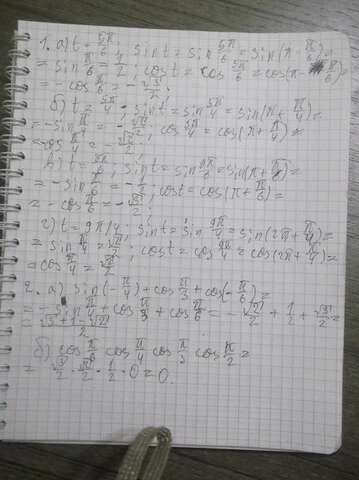 1. а) t = 5π/6, sin t = sin 5π/6 = sin(π - π/6) =
= sin π/6 = 1/2; cos t = cos 5π/6 = cos(π - π/6) =
= -cos π/6 = -√3/2.
б) t = 5π/4, sin t = sin 5π/4 = sin(π + π/4) =
= -sin π/4 = -√2/2; cos 5π/4 = cos(π + π/4) =
= -cos π/4 = -√2/2.
в) t = 7π/6, sin t = sin 7π/6 = sin(π + π/6) =
= -sin π/6 = -1/2; cos t = cos(π + π/6) =
= -cos π/6 = -√3/2.
г) t = 9π/4; sin t = sin 9π/4 = sin(2π + π/4) =
= sin π/4 = √2/2; cos t = cos 9π/4 = cos(2π + π/4) =
= cos π/4 = √2/2.
2. а) sin(-π/4) + cos π/3 + cos(-π/6) =
= -sin π/4 + cos π/3 + cos π/6 = -√2/2 + 1/2 + √3/2 =
= √3+1-√2/2
б) cos π/6 cos π/4 cos π/3 cos π/2 =
= √3/2 · √2/2 · 1/2 · 0 = 0.